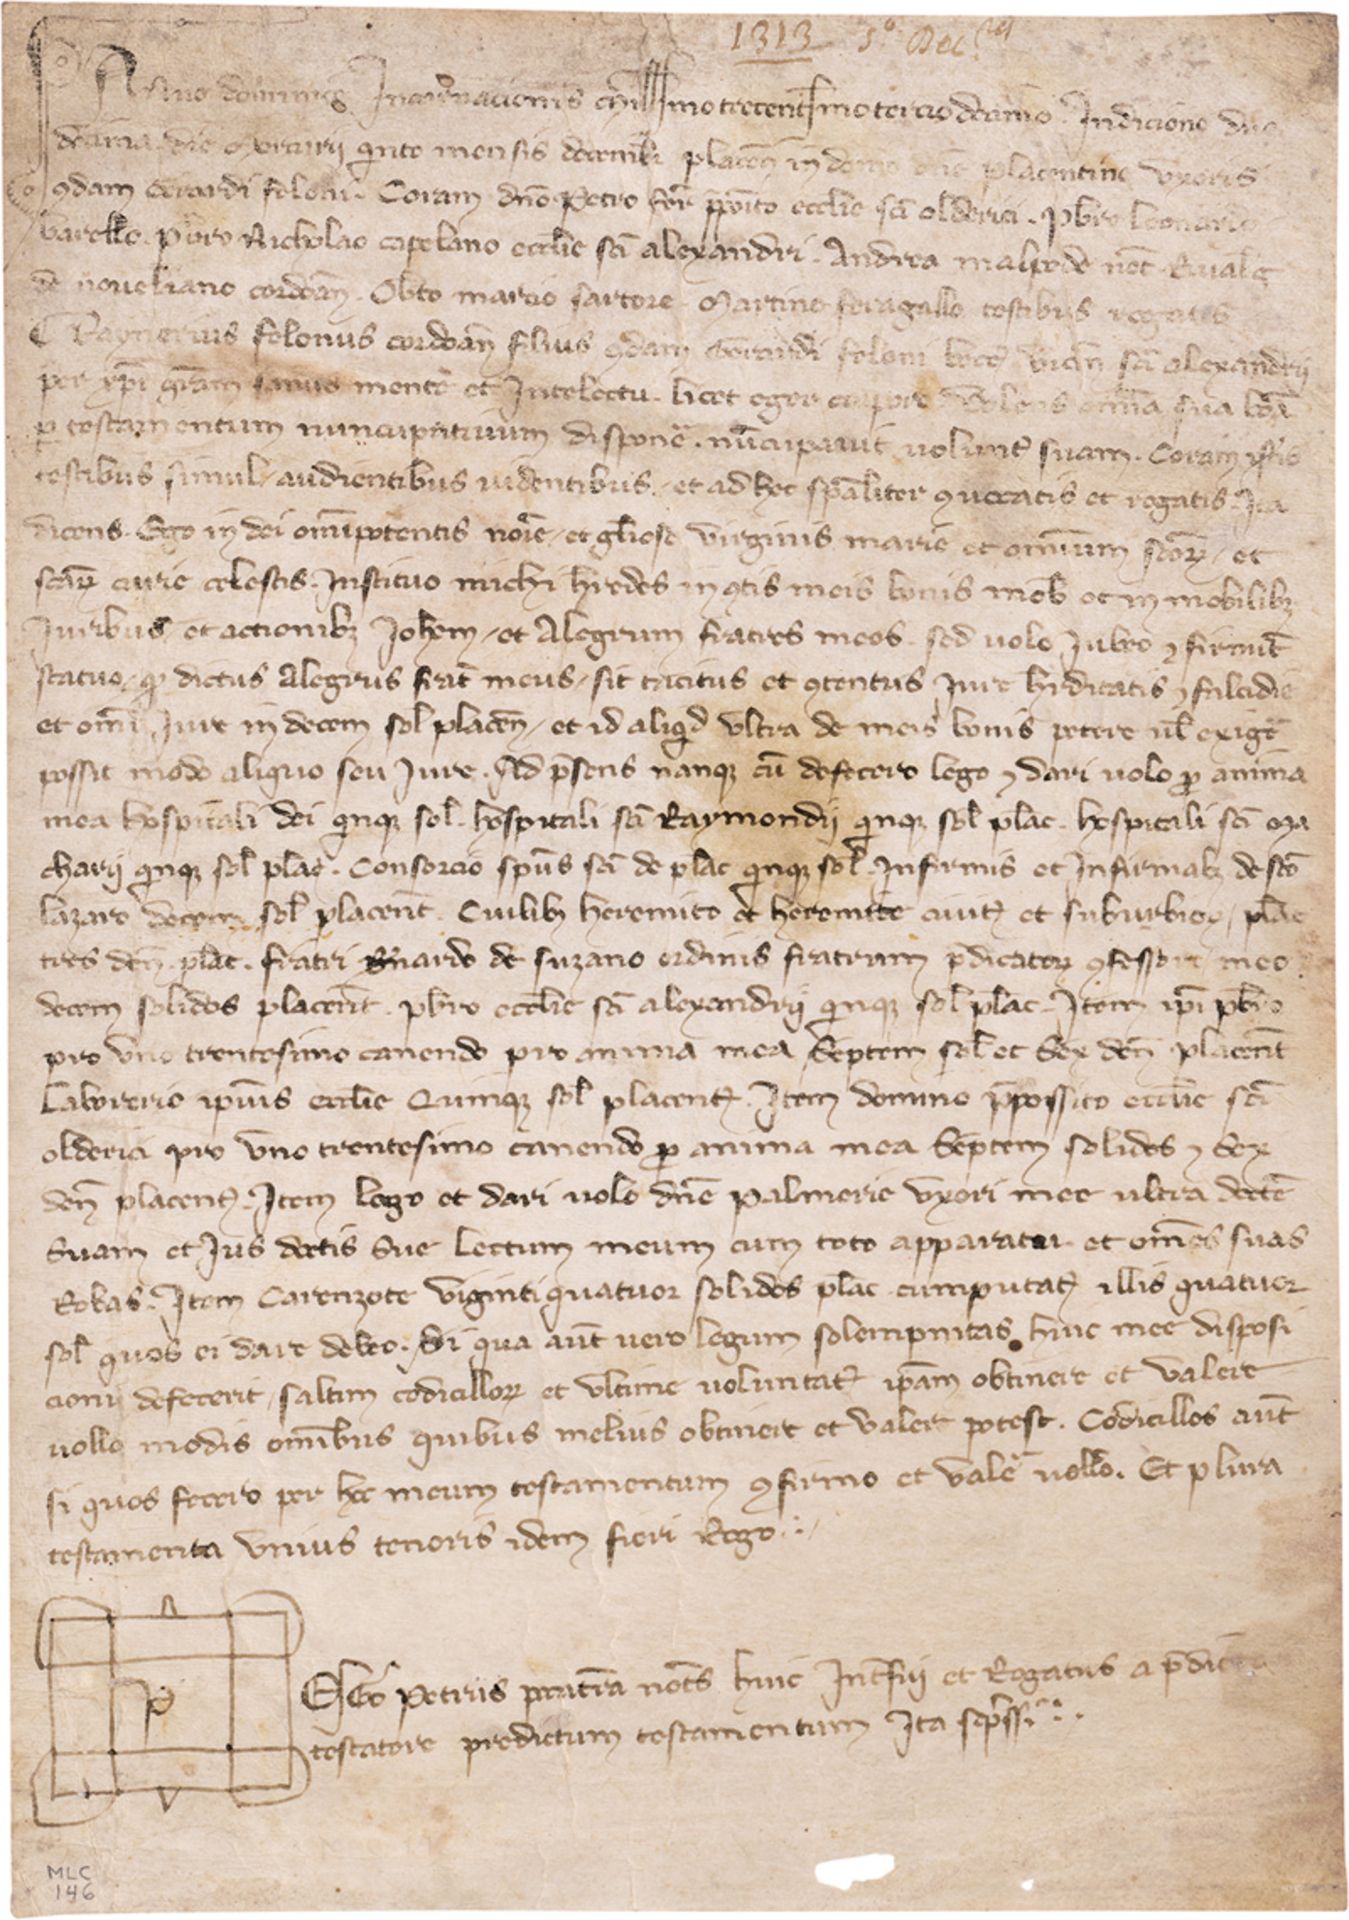 1313 5º Dec
Anno dominice Incarnacionis Mºtrecentesimotercio decimo. Indicione duo
decima die mercurij quinto mensis decembr̄ placen̄ in domo placentine vxoris
qdam Girardi foloni. Coram dn̄o Petro ppoito eccl̄ie sc̄i olderici. pb̄ro leonardo
barello. pb̄ro Nicholao capelano eccl̄ie sc̄i alexandri. Andrea malpede not̄
de noueliano cordoan̄. Ob̄to sartore. Martino feragallo testibus rogatis
Raynerius folonus cordoan̄ filius qdam Girardi foloni vicin̄ sc̄i alexandrij
per xp̄i gr̄am sanus mente et Intelectu. licet eger corpore volens om̄ia sua bōa
p testamentum nuncupatiuum disponē. nūcupauit volunt̄ suam. Coram ip̄is
testibus simul audientibus uidentibus. et ad hec sp̄aliter conuocatis et rogatis. Ita
dicens. Ego in dei om̄ipotentis noīe et gl̄iose virginis marie et omnium sc̄oꝝ et
sc̄aꝝ curie celestis. Instituo michi h̄redes in qtis meis bonis mob̄ et inmobilibꝫ
Iuribus et actionibꝫ Ioh̄em et Alegrum fratres meos. sed uolo Iubeo ⁊ firmit̄
statuo qd dictus Alegrus frat̄ meus sit tacitus et qtentus Iure h̄editatis ⁊ falcidie
et om̄i Iure in decem sol̄ placen̄ et id aliqd vltra de meis bonis petere ul̄ exigē
possit modo aliquo seu Iure. Ad p̄sens nanqꝫ cū decessero lego ⁊ dari uolo p anima
mea hospitali dei quinqꝫ sol̄. hospitali sc̄i Raymondij quinqꝫ sol̄ plac̄. hospitali sc̄i ma
charij quinqꝫ sol̄ plac̄. Consorcio sp̄us sc̄i de plac̄ quinqꝫ sol̄. Infirmis et Infirmabꝫ de sc̄o
lazaro decem sol̄ placent̄. Cuilibꝫ heremite et heremite ciuit̄ et suburbioꝝ plac̄
tres den̄ plac̄. fratri de suzano ordinis fratrum p̄dicatoꝝ qfessori meo
decem solidos placent̄. pb̄ro eccl̄ie sc̄i alexandrij quinqꝫ sol̄ plac̄. Item ip̄i pb̄ro
pro vno trentesimo canendo pro anima mea Septem sol̄ et Sex den̄ placent̄
Laborerio ipsius eccl̄ie Quinqꝫ sol̄ placent̄. Item domino p̄possito eccl̄ie sc̄i
olderici pro vno trentesimo canendo p anima mea Septem solidos ⁊ Sex
den̄ placent̄. Item lego et dari uolo dn̄e Palmerie vxori mee ultra doctē
Suam et Ius doctis Sue Lectum meum cum toto apparatu et om̄es suas
Robas. Item Carenzote viginti quatuor solidos plac̄ cumputat̄ illis quatuor
sol̄ quos ei dare debeo. Si qua aut̄ uero legum solempnitas huic mee disposi
cioni defecerit saltim codicilloꝝ et vltime uoluntat̄ ip̄am obtinere et valere
uollo modis om̄ibus quibus melius obtinere et valere potest. Codicillos aut̄
si quos fecero per hoc meum testamentum qfirmo et valē uollo. Et plura
testamenta vnius tenoris idem fieri Rogo.
P
EGo Petrus not̄s huic Int̄fuj et Rogatus a p̄dicto
testatore predictum testamentum Ita scp̄ssi
MLC
146